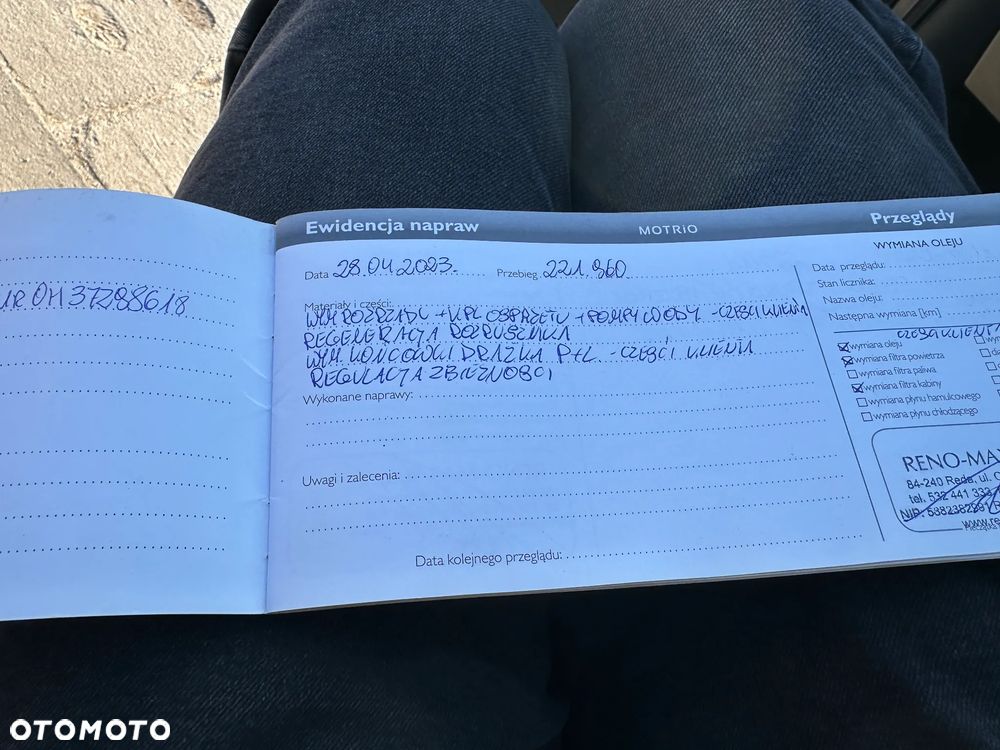 Ewidencja napraw
MOTRiO
Przeglądy
Data 28.04.2023. Przebieg 221.860
Materiały i części:
WYM ROZRZĄDU + KPL OSPRZĘTU + POMPY WODY - CZĘŚCI KLIENTA
REGENERACJA ROZRUSZNIKA
WYM. KOŃCÓWKI DRĄŻKA P+L - CZĘŚCI KLIENTA
REGULACJA ZBIEŻNOŚCI
Wykonane naprawy:
Uwagi i zalecenia:
Data kolejnego przeglądu:
WYMIANA OLEJU
Data przeglądu:
Stan licznika:
Nazwa oleju:
Następna wymiana [km]
CZĘŚCI KLIENTA
wymiana oleju
wymiana filtra powietrza
wymiana filtra paliwa
wymiana filtra kabiny
wymiana płynu hamulcowego
wymiana płynu chłodzącego
RENO-MA
84-240 Reda, ul.
tel. 532 441 333
NIP: 5882382991
www.r
OTOMOTO